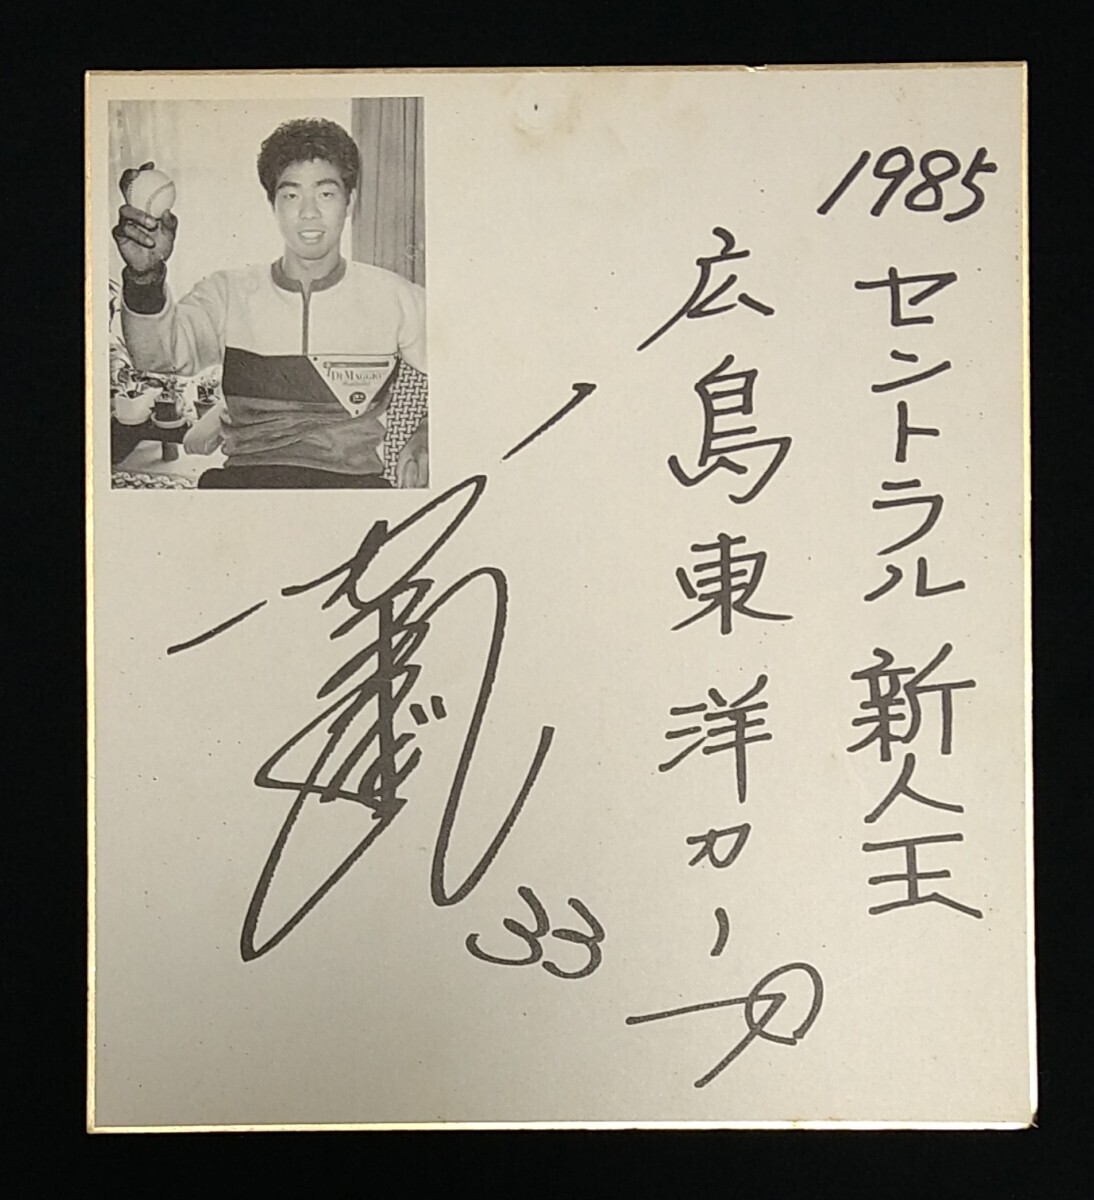 1985
セントラル新人王
広島東洋カープ
33
DIMAGGIO